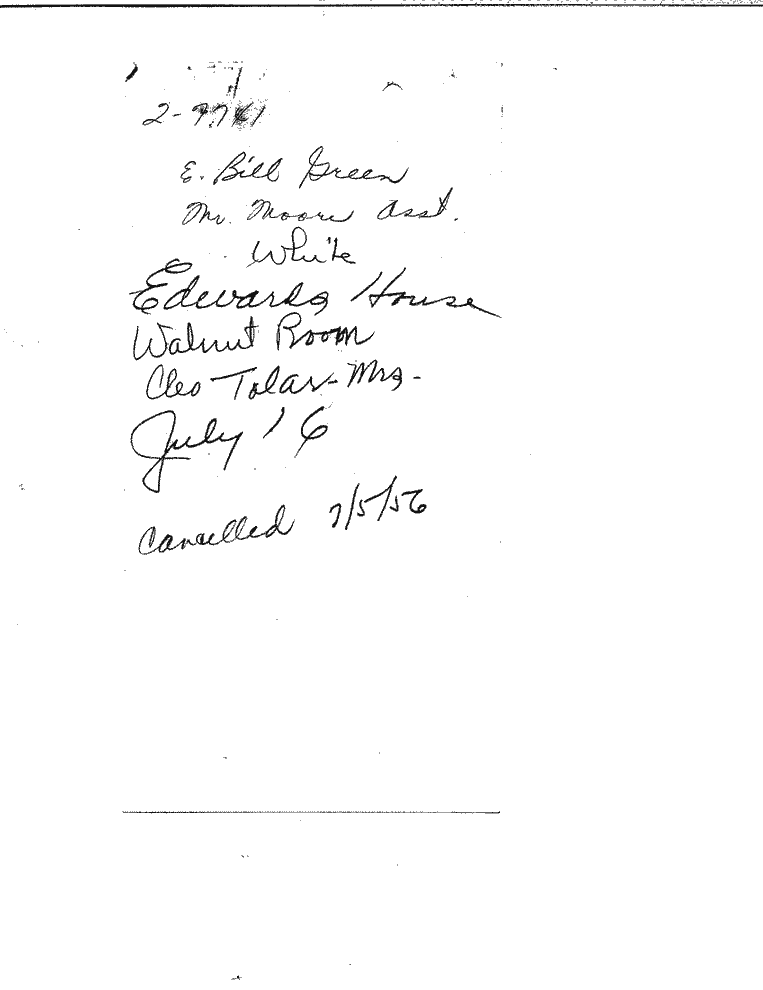 2-9741
E. Bill Green
Mr. Moore Asst.
White
Edwards House
Walnut Room
Cleo Tolar-Mrs-
July 16
Cancelled 7/5/56